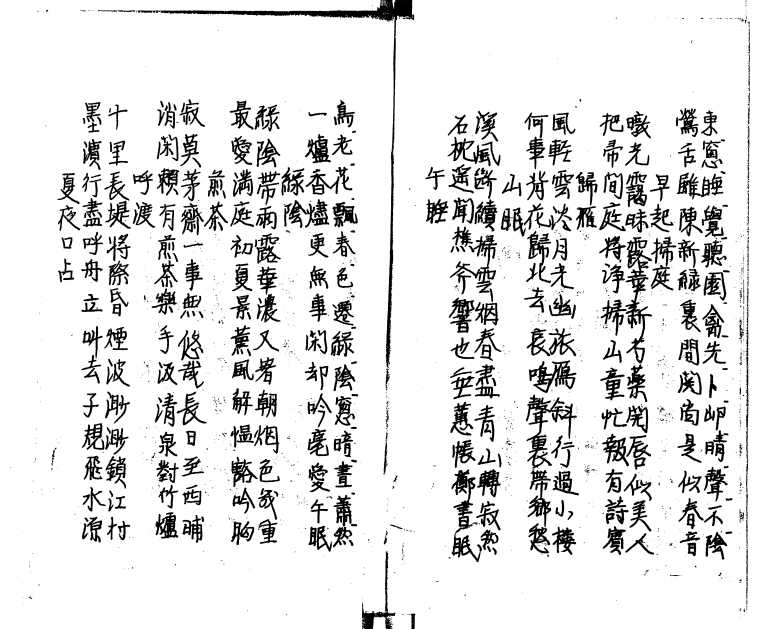 東窓睡覺聽園禽先卜岬晴聲不陰
鶯舌雖陳新緑裏間関尚是似春音
早起掃庭
暾光靄昧露華新芍薬開唇似美人
把帚間庭将浄掃山童忙報有詩賓
歸雁
風軽雲淡月光幽旅雁斜行過小楼
何事背花歸北去哀鳴聲裏帯郷愁
山眠
溪風断續掃雲烟春盡青山轉寂然
石枕遥聞樵斧響也無蕙帳擲書眠
午睡
鳥老花飄春色遷緑陰窓暗晝蕭然
一爐香燼更無事閑却吟毫愛午眠
緑陰
緑陰帯雨露華濃又暑朝烟色幾重
最愛満庭初夏景薫風解慍豁吟胸
煎茶
寂莫茅齋一事無悠哉長日至西晡
消閑頼有煎茶樂手汲清泉對竹爐
呼渡
十里長堤将際昏煙波渺渺鎖江村
墨濱行盡呼舟立叫去子規飛水源
夏夜口占